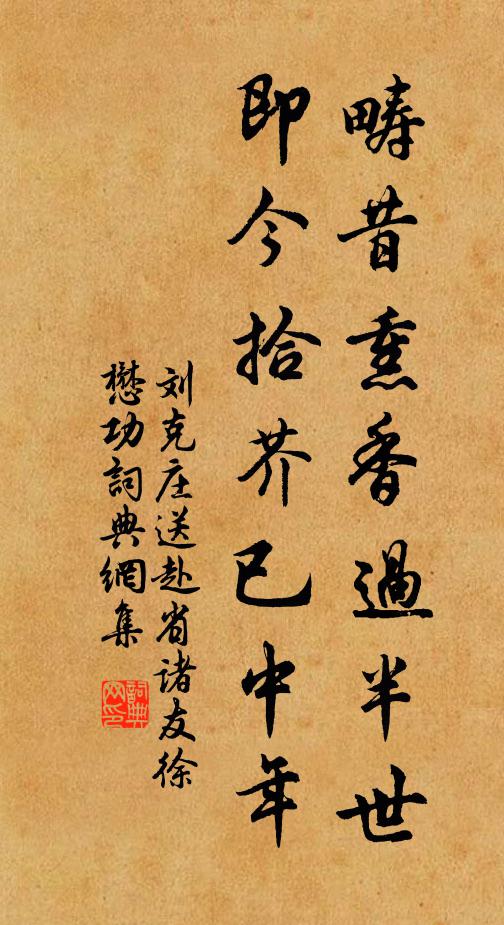 畴昔熏香過半世
即今拾芥已中年
刘克庄送赴省诸友徐
懋功詞典網集
詞典网印